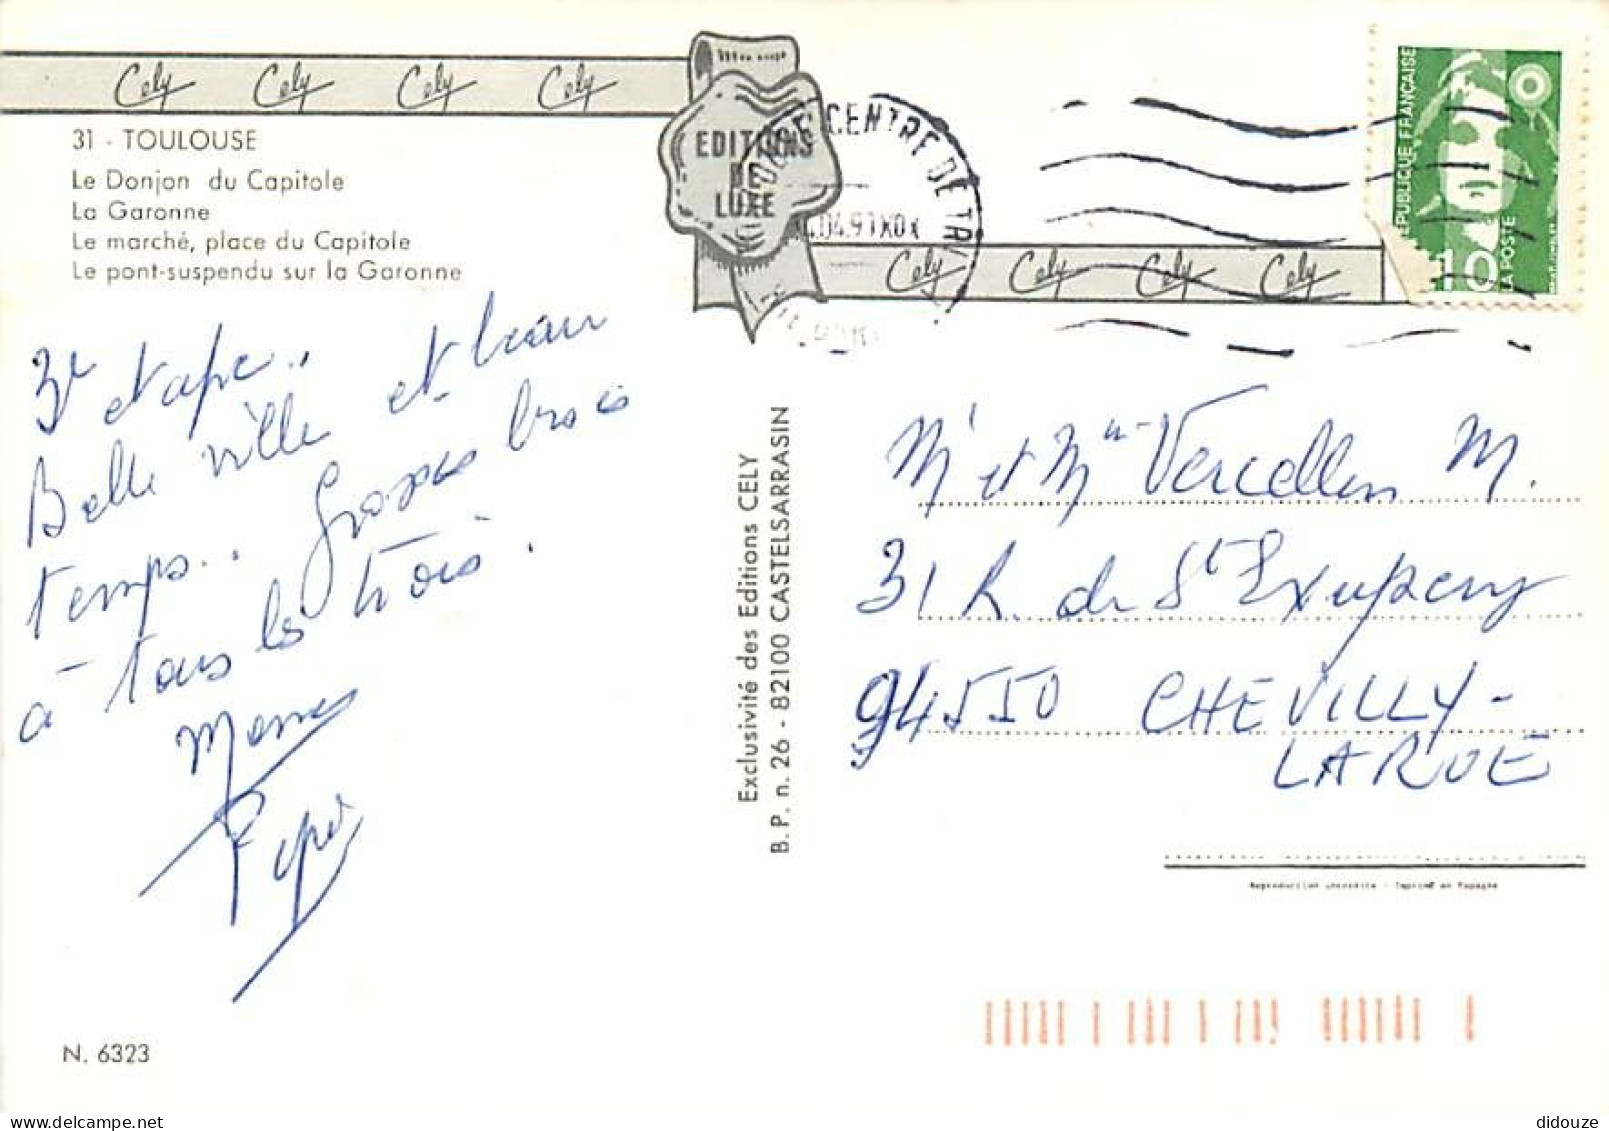 Cely Cely Cely Cely
31 - TOULOUSE
Le Donjon du Capitole
La Garonne
Le marché, place du Capitole
Le pont-suspendu sur la Garonne
EDITIONS
DE
LUXE
CENTRE DE TRI
Cely Cely Cely Cely
REPUBLIQUE FRANÇAISE
10
LA POSTE
3e etape..
Belle ville et beau
temps.. Grosses bises
à tous les trois.
Pépé
Exclusivité des Editions CELY
B.P. n. 26 - 82100 CASTELSARRASIN
Mr et Mme Vercellen M.
31 R. de St Exupery
94550 CHEVILLY-
LARUE
Reproduction interdite - Imprimé en Espagne
N. 6323
didouze